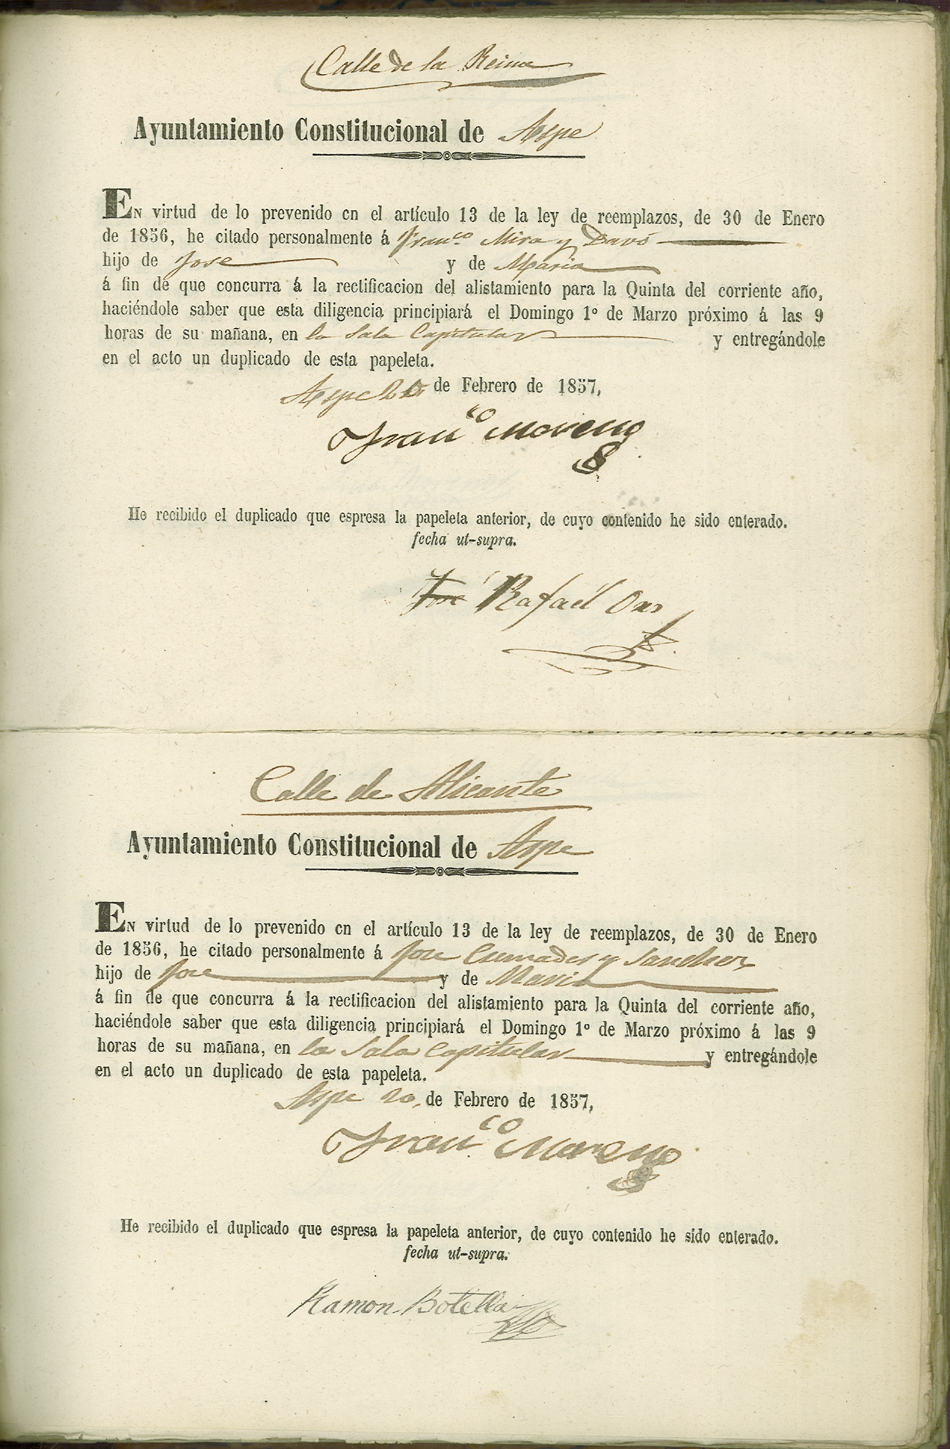 Calle de la Reina
Ayuntamiento Constitucional de Aspe
EN virtud de lo prevenido en el artículo 13 de la ley de reemplazos, de 30 de Enero
de 1856, he citado personalmente á Franco. Mira y Davó
hijo de Jose y de Maria
á fin de que concurra á la rectificacion del alistamiento para la Quinta del corriente año,
haciéndole saber que esta diligencia principiará el Domingo 1º de Marzo próximo á las 9
horas de su mañana, en la Sala Capitular y entregándole
en el acto un duplicado de esta papeleta.
Aspe de Febrero de 1857,
Franco Moreno
He recibido el duplicado que espresa la papeleta anterior, de cuyo contenido he sido enterado.
fecha ut-supra.
Jose Rafael
Calle de Alicante
Ayuntamiento Constitucional de Aspe
EN virtud de lo prevenido en el artículo 13 de la ley de reemplazos, de 30 de Enero
de 1856, he citado personalmente á Jose Cremades y Sanchez
hijo de Jose y de Maria
á fin de que concurra á la rectificacion del alistamiento para la Quinta del corriente año,
haciéndole saber que esta diligencia principiará el Domingo 1º de Marzo próximo á las 9
horas de su mañana, en la Sala Capitular y entregándole
en el acto un duplicado de esta papeleta.
Aspe 20, de Febrero de 1857,
Franco Moreno
He recibido el duplicado que espresa la papeleta anterior, de cuyo contenido he sido enterado.
fecha ut-supra.
Ramon Botella